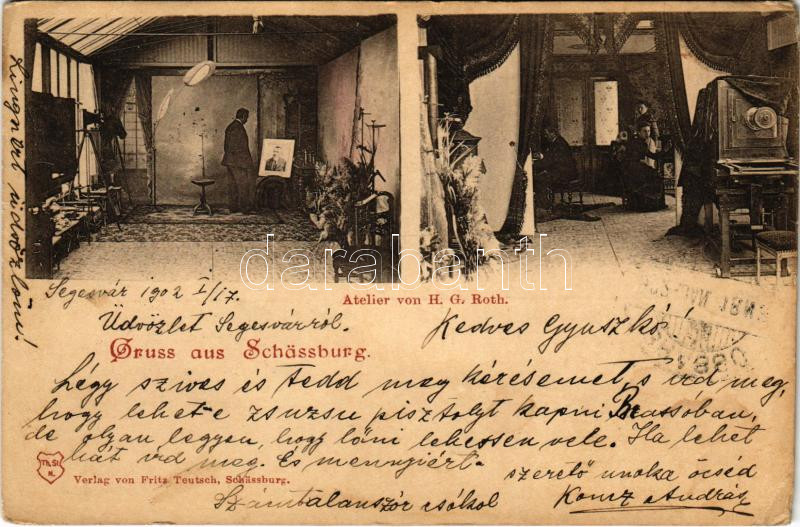 Atelier von H. G. Roth.
Segesvár 1902 I/17.
Üdvözlet Segesvárról.
Kedves Gyuszkó!
Gruss aus Schässburg.
Légy szives és tedd meg kérésemet, s ird meg,
hogy lehet-e zsuzsu pisztolyt kapni Brassoban,
de olyan legyen, hogy lőni lehessen vele. Ha lehet
hát ird meg. És mennyiért.
szerető unoka öcséd
Számtalanszór csókol
Koncz András
Verlag von Fritz Teutsch, Schässburg.
darabanth